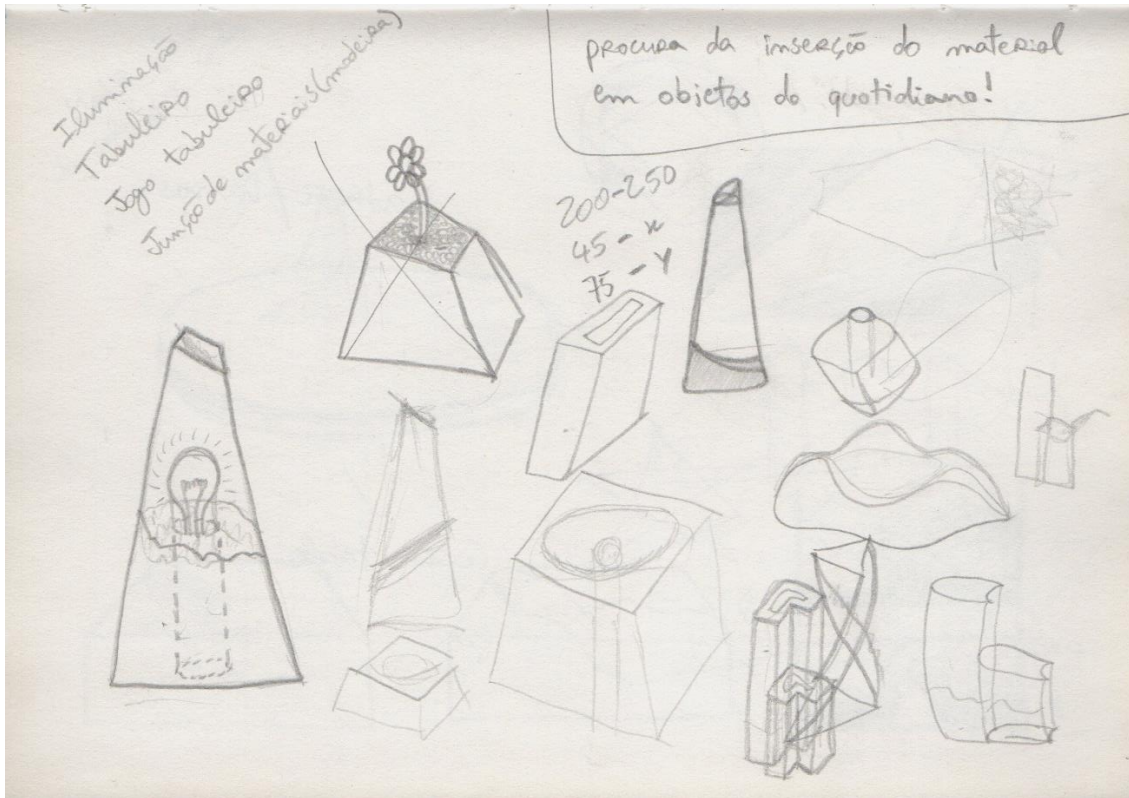 Iluminação
Tabuleiro
Jogo tabuleiro
Junção de materiais (madeira)
procura da inserção do material
em objetos do quotidiano!
200-250
45 - x
75 - y